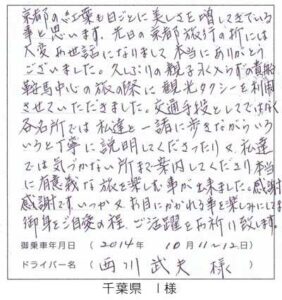 京都の紅葉も日ごとに美しさを増してきている
事と思います。先日の京都旅行の折には
大変お世話になりまして本当にありがとう
ございました。久しぶりの親子水入らずの貴船
鞍馬中心の旅の際に観光タクシーを利用
させていただきました。交通手段としてではなく
各名所では私達と一緒に歩きながらいろい
ろと丁寧に説明してくださったり又、私達
では気づかない所まで案内してくださり本当
に有意義な旅を楽しむ事が出来ました。感謝
感謝です。いつか又お目にかかれる事を楽しみにしてます
御身をご自愛の程、ご活躍をお祈り致します。
御乗車年月日 ( 2014年 10月11~12日)
ドライバー名 ( 西川 武史 様 )
千葉県 I様